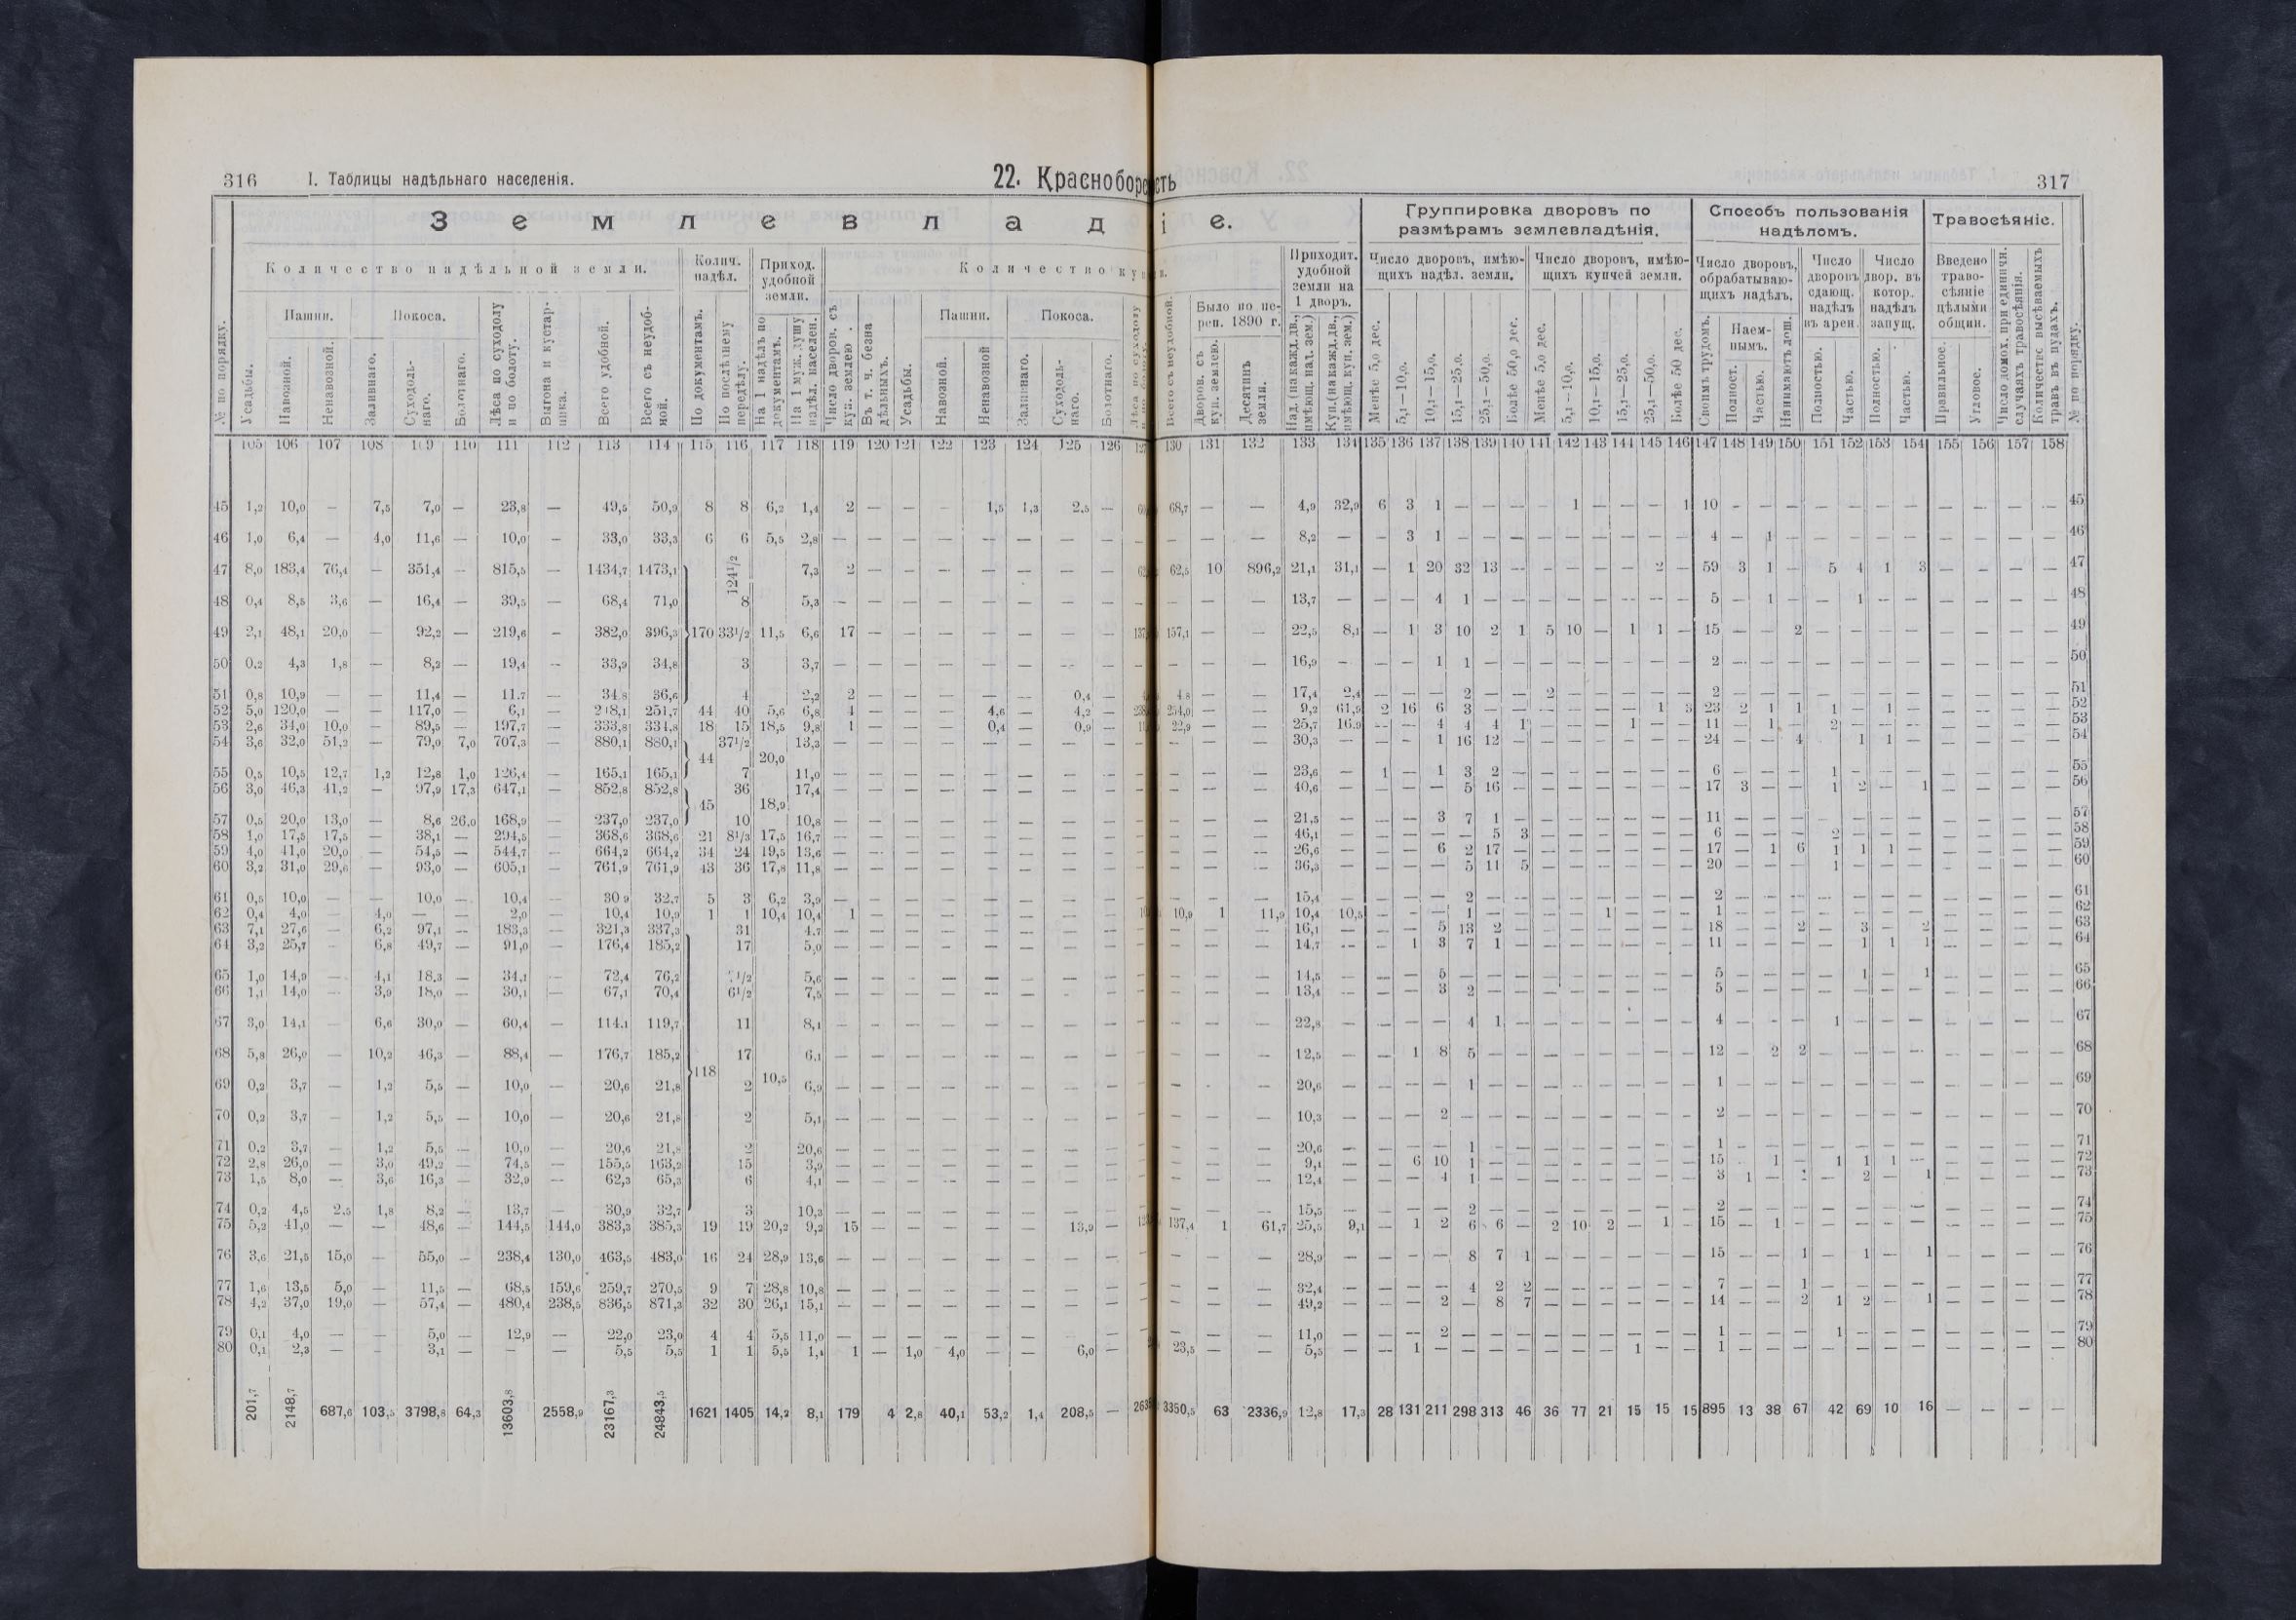 316 I. Таблицы надѣльнаго населенія. 22. Краснобор сть 317
З е м л е в л а д і е.
Группировка дворовъ по размѣрамъ землевладѣнія.
Способъ пользованія надѣломъ.
Травосѣяніе.
Количество надѣльной земли.
Колич. надѣл.
Приход. удобной земли.
Количество ку
Было по переп. 1890 г.
Приходит. удобной земли на 1 дворъ.
Число дворовъ, имѣющихъ надѣл. земли.
Число дворовъ, имѣющихъ купчей земли.
Число дворовъ, обрабатывающихъ надѣлъ.
Число дворовъ сдающ. надѣлъ въ арен.
Число двор. въ котор. надѣлъ запущ.
Введено травосѣяніе цѣлыми общин.
№ по порядку. Усадьбы. Пашни. Навозной. Ненавозной. Покоса. Заливнаго. Суходольнаго. Болотнаго. Лѣса по суходолу и по болоту. Выгона и кустарника. Всего удобной. Всего съ неудобной. По документамъ. По послѣднему передѣлу. На 1 надѣлъ по документамъ. На 1 муж. душу надѣл. населен. Число дворов. съ куп. землею. Въ т. ч. безнадѣльныхъ. Усадьбы. Пашни. Навозной. Ненавозной Покоса. Заливнаго. Суходольнаго. Болотнаго.
Всего съ неудобной. Дворов. съ куп. землею. Десятинъ земли. Над. (на кажд. дв., имѣющ. над. зем.) Куп. (на кажд. дв., имѣющ. куп. зем.) Менѣе 5,0 дес. 5,1—10,0. 10,1—15,0. 15,1—25,0. 25,1—50,0. Болѣе 50,0 дес. Менѣе 5,0 дес. 5,1—10,0. 10,1—15,0. 15,1—25,0. 25,1—50,0. Болѣе 50 дес. Своимъ трудомъ. Наемнымъ. Полност. Частью. Нанимаютъ лош. Полностью. Частью. Полностью. Частью. Правильное. Угловое. Число домох. при единичн. случаяхъ травосѣянія. Количес. высѣваемыхъ травъ въ пудахъ. № по порядку.
105 106 107 108 109 110 111 112 113 114 115 116 117 118 119 120 121 122 123 124 125 126 127 130 131 132 133 134 135 136 137 138 139 140 141 142 143 144 145 146 147 148 149 150 151 152 153 154 155 156 157 158
45 1,2 10,0 — 7,5 7,0 — 23,8 — 49,5 50,9 8 8 6,2 1,4 2 — — — 1,5 1,3 2,5 — 68,7 — — 4,9 32,9 6 3 1 — — — — 1 — — — 1 10 — — — — — — — — — — — 45
46 1,0 6,4 — 4,0 11,6 — 10,0 — 33,0 33,3 6 6 5,5 2,8 — — — — — — — — — — — — 8,2 — — 3 1 — — — — — — — — — 4 — 1 — — — — — — — — — 46
47 8,0 183,4 76,4 — 351,4 — 815,5 — 1434,7 1473,1 124½ 7,3 2 — — — — — — — 62,5 10 896,2 21,1 31,1 — 1 20 32 13 — — — — — 2 — 59 3 1 — 5 4 1 3 — — — — 47
48 0,4 8,5 3,6 — 16,4 — 39,5 — 68,4 71,0 8 5,3 — — — — — — — — — — — — 13,7 — — — 4 1 — — — — — — — — 5 — 1 — — 1 — — — — — — 48
49 2,1 48,1 20,0 — 92,2 — 219,6 — 382,0 396,3 170 33½ 11,5 6,6 17 — — — — — — — 157,1 — — 22,5 8,1 — 1 3 10 2 1 5 10 — 1 1 — 15 — — 2 — — — — — — — — 49
50 0,2 4,3 1,8 — 8,2 — 19,4 — 33,9 34,8 3 3,7 — — — — — — — — — — — — 16,9 — — — 1 1 — — — — — — — — 2 — — — — — — — — — — — 50
51 0,8 10,9 — — 11,4 — 11,7 — 34,8 36,6 4 2,2 2 — — — — — 0,4 — 4,8 — — 17,4 2,4 — — — 2 — — 2 — — — — — 2 — — — — — — — — — — — 51
52 5,0 120,0 — — 117,0 — 6,1 — 248,1 251,7 44 40 5,6 6,8 4 — — — 4,6 — 4,2 — 254,0 — — 9,2 61,5 2 16 6 3 — — — — — — 1 3 23 2 1 1 1 — 1 — — — — — 52
53 2,6 34,0 10,0 — 89,5 — 197,7 — 333,8 334,8 18 15 18,5 9,8 1 — — — 0,4 — 0,9 — 22,9 — — 25,7 16,9 — — 4 4 4 1 — — — 1 — — 11 — 1 — 2 — — — — — — — 53
54 3,6 32,0 51,2 — 79,0 7,0 707,3 — 880,1 880,1 37½ 13,3 — — — — — — — — — — — — 30,3 — — — 1 16 12 — — — — — — — 24 — — 4 1 1 — — — — — 54
44 20,0
55 0,5 10,5 12,7 1,2 12,8 1,0 126,4 — 165,1 165,1 7 11,0 — — — — — — — — — — — — 23,6 — 1 — 1 3 2 — — — — — — — 6 — — — 1 — — — — — — — 55
56 3,0 46,3 41,2 — 97,9 17,3 647,1 — 852,8 852,8 36 17,4 — — — — — — — — — — — — 40,6 — — — — 5 16 — — — — — — — 17 3 — — 1 2 — 1 — — — — 56
45 18,9
57 0,5 20,0 13,0 — 8,6 26,0 168,9 — 237,0 237,0 10 10,8 — — — — — — — — — — — — 21,5 — — — 3 7 1 — — — — — — — 11 — — — — — — — — — — — 57
58 1,0 17,5 17,5 — 38,1 — 294,5 — 368,6 368,6 21 8⅓ 17,5 16,7 — — — — — — — — — — — — 46,1 — — — — — 5 3 — — — — — — 6 — — — 2 — — — — — — — 58
59 4,0 41,0 20,0 — 54,5 — 544,7 — 664,2 664,2 34 24 19,5 13,6 — — — — — — — — — — — — 26,6 — — — 6 2 17 — — — — — — — 17 — 1 6 1 1 1 — — — — — 59
60 3,2 31,0 29,6 — 93,0 — 605,1 — 761,9 761,9 43 36 17,8 11,8 — — — — — — — — — — — — 36,3 — — — — 5 11 5 — — — — — — 20 — — — 1 — — — — — — — 60
61 0,5 10,0 — — 10,0 — 10,4 — 30,9 32,7 5 3 6,2 3,9 — — — — — — — — — — — — 15,4 — — — — 2 — — — — — — — — 2 — — — — — — — — — — — 61
62 0,4 4,0 — 4,0 — — 2,0 — 10,4 10,9 1 1 10,4 10,4 1 — — — — — — — 10,9 1 11,9 10,4 10,5 — — — 1 — — — — 1 — — — 1 — — — — — — — — — — — 62
63 7,1 27,6 — 6,2 97,1 — 183,3 — 321,3 337,3 31 4,7 — — — — — — — — — — — — 16,1 — — — 5 13 2 — — — — — — — 18 — — 2 — 3 — 2 — — — — 63
64 3,2 25,7 — 6,8 49,7 — 91,0 — 176,4 185,2 17 5,0 — — — — — — — — — — — — 14,7 — — 1 3 7 1 — — — — — — — 11 — — — — 1 1 1 — — — — 64
65 1,0 14,9 — 4,1 18,3 — 34,1 — 72,4 76,2 5,6 — — — — — — — — — — — — 14,5 — — — 5 — — — — — — — — — 5 — — — — 1 — 1 — — — — 65
66 1,1 14,0 — 3,9 18,0 — 30,1 — 67,1 70,4 6½ 7,5 — — — — — — — — — — — — 13,4 — — — 3 2 — — — — — — — — 5 — — — — — — — — — — — 66
67 3,0 14,1 — 6,6 30,0 — 60,4 — 114,1 119,7 11 8,1 — — — — — — — — — — — — 22,8 — — — — 4 1 — — — — — — — 4 — — — 1 — — — — — — — 67
68 5,8 26,0 — 10,2 46,3 — 88,4 — 176,7 185,2 17 6,1 — — — — — — — — — — — — 12,5 — — 1 8 5 — — — — — — — — 12 — 2 2 — — — — — — — — 68
118 10,5
69 0,2 3,7 — 1,2 5,5 — 10,0 — 20,6 21,8 2 6,9 — — — — — — — — — — — — 20,6 — — — — 1 — — — — — — — — 1 — — — — — — — — — — — 69
70 0,2 3,7 — 1,2 5,5 — 10,0 — 20,6 21,8 2 5,1 — — — — — — — — — — — — 10,3 — — — 2 — — — — — — — — — 2 — — — — — — — — — — — 70
71 0,2 3,7 — 1,2 5,5 — 10,0 — 20,6 21,8 2 20,6 — — — — — — — — — — — — 20,6 — — — — 1 — — — — — — — — 1 — — — — — — — — — — — 71
72 2,8 26,0 — 3,0 49,2 — 74,5 — 155,5 163,2 15 3,9 — — — — — — — — — — — — 9,1 — — 6 10 1 — — — — — — — — 15 — 1 — 1 1 1 — — — — — 72
73 1,5 8,0 — 3,6 16,3 — 32,9 — 62,3 65,3 6 4,1 — — — — — — — — — — — — 12,4 — — — 4 1 — — — — — — — — 3 1 — — 2 — 1 — — — — 73
74 0,2 4,5 2,5 1,8 8,2 — 13,7 — 30,9 32,7 3 10,3 — — — — — — — — — — — — 15,5 — — — — 2 — — — — — — — — 2 — — — — — — — — — — — 74
75 5,2 41,0 — — 48,6 — 144,5 144,0 383,3 385,3 19 19 20,2 9,2 15 — — — — — 13,9 — 137,4 1 61,7 25,5 9,1 — 1 2 6 6 — 2 10 2 — 1 — 15 — 1 — — — — — — — — — 75
76 3,6 21,5 15,0 — 55,0 — 238,4 130,0 463,5 483,0 16 24 28,9 13,6 — — — — — — — — — — — — 28,9 — — — — 8 7 1 — — — — — — 15 — — 1 — 1 — 1 — — — — 76
77 1,6 13,5 5,0 — 11,5 — 68,5 159,6 259,7 270,5 9 7 28,8 10,8 — — — — — — — — — — — — 32,4 — — — — 4 2 2 — — — — — — 7 — — 1 — — — — — — — — 77
78 4,2 37,0 19,0 — 57,4 — 480,4 238,5 836,5 871,3 32 30 26,1 15,1 — — — — — — — — — — — — 49,2 — — — 2 — 8 7 — — — — — — 14 — — 2 1 2 — 1 — — — — 78
79 0,1 4,0 — — 5,0 — 12,9 — 22,0 23,0 4 4 5,5 11,0 — — — — — — — — — — — — 11,0 — — — 2 — — — — — — — — — 1 — — — 1 — — — — — — — 79
80 0,1 2,3 — — 3,1 — — — 5,5 5,5 1 1 5,5 1,4 1 — 1,0 4,0 — — 6,0 — 23,5 — — 5,5 — — 1 — — — — — — — 1 — — 1 — — — — — — — — — — — 80
201,7 2148,7 687,6 103,5 3798,8 64,3 13603,8 2558,9 23167,3 24843,5 1621 1405 14,2 8,1 179 4 2,8 40,1 53,2 1,4 208,5 — 3350,5 63 2336,9 12,8 17,3 28 131 211 298 313 46 36 77 21 15 15 15 895 13 38 67 42 69 10 16 — — — —